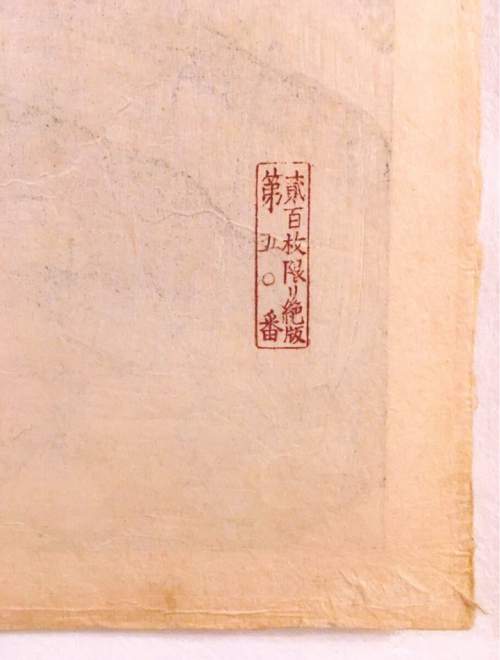 貳百枚限リ絶版
第五〇番